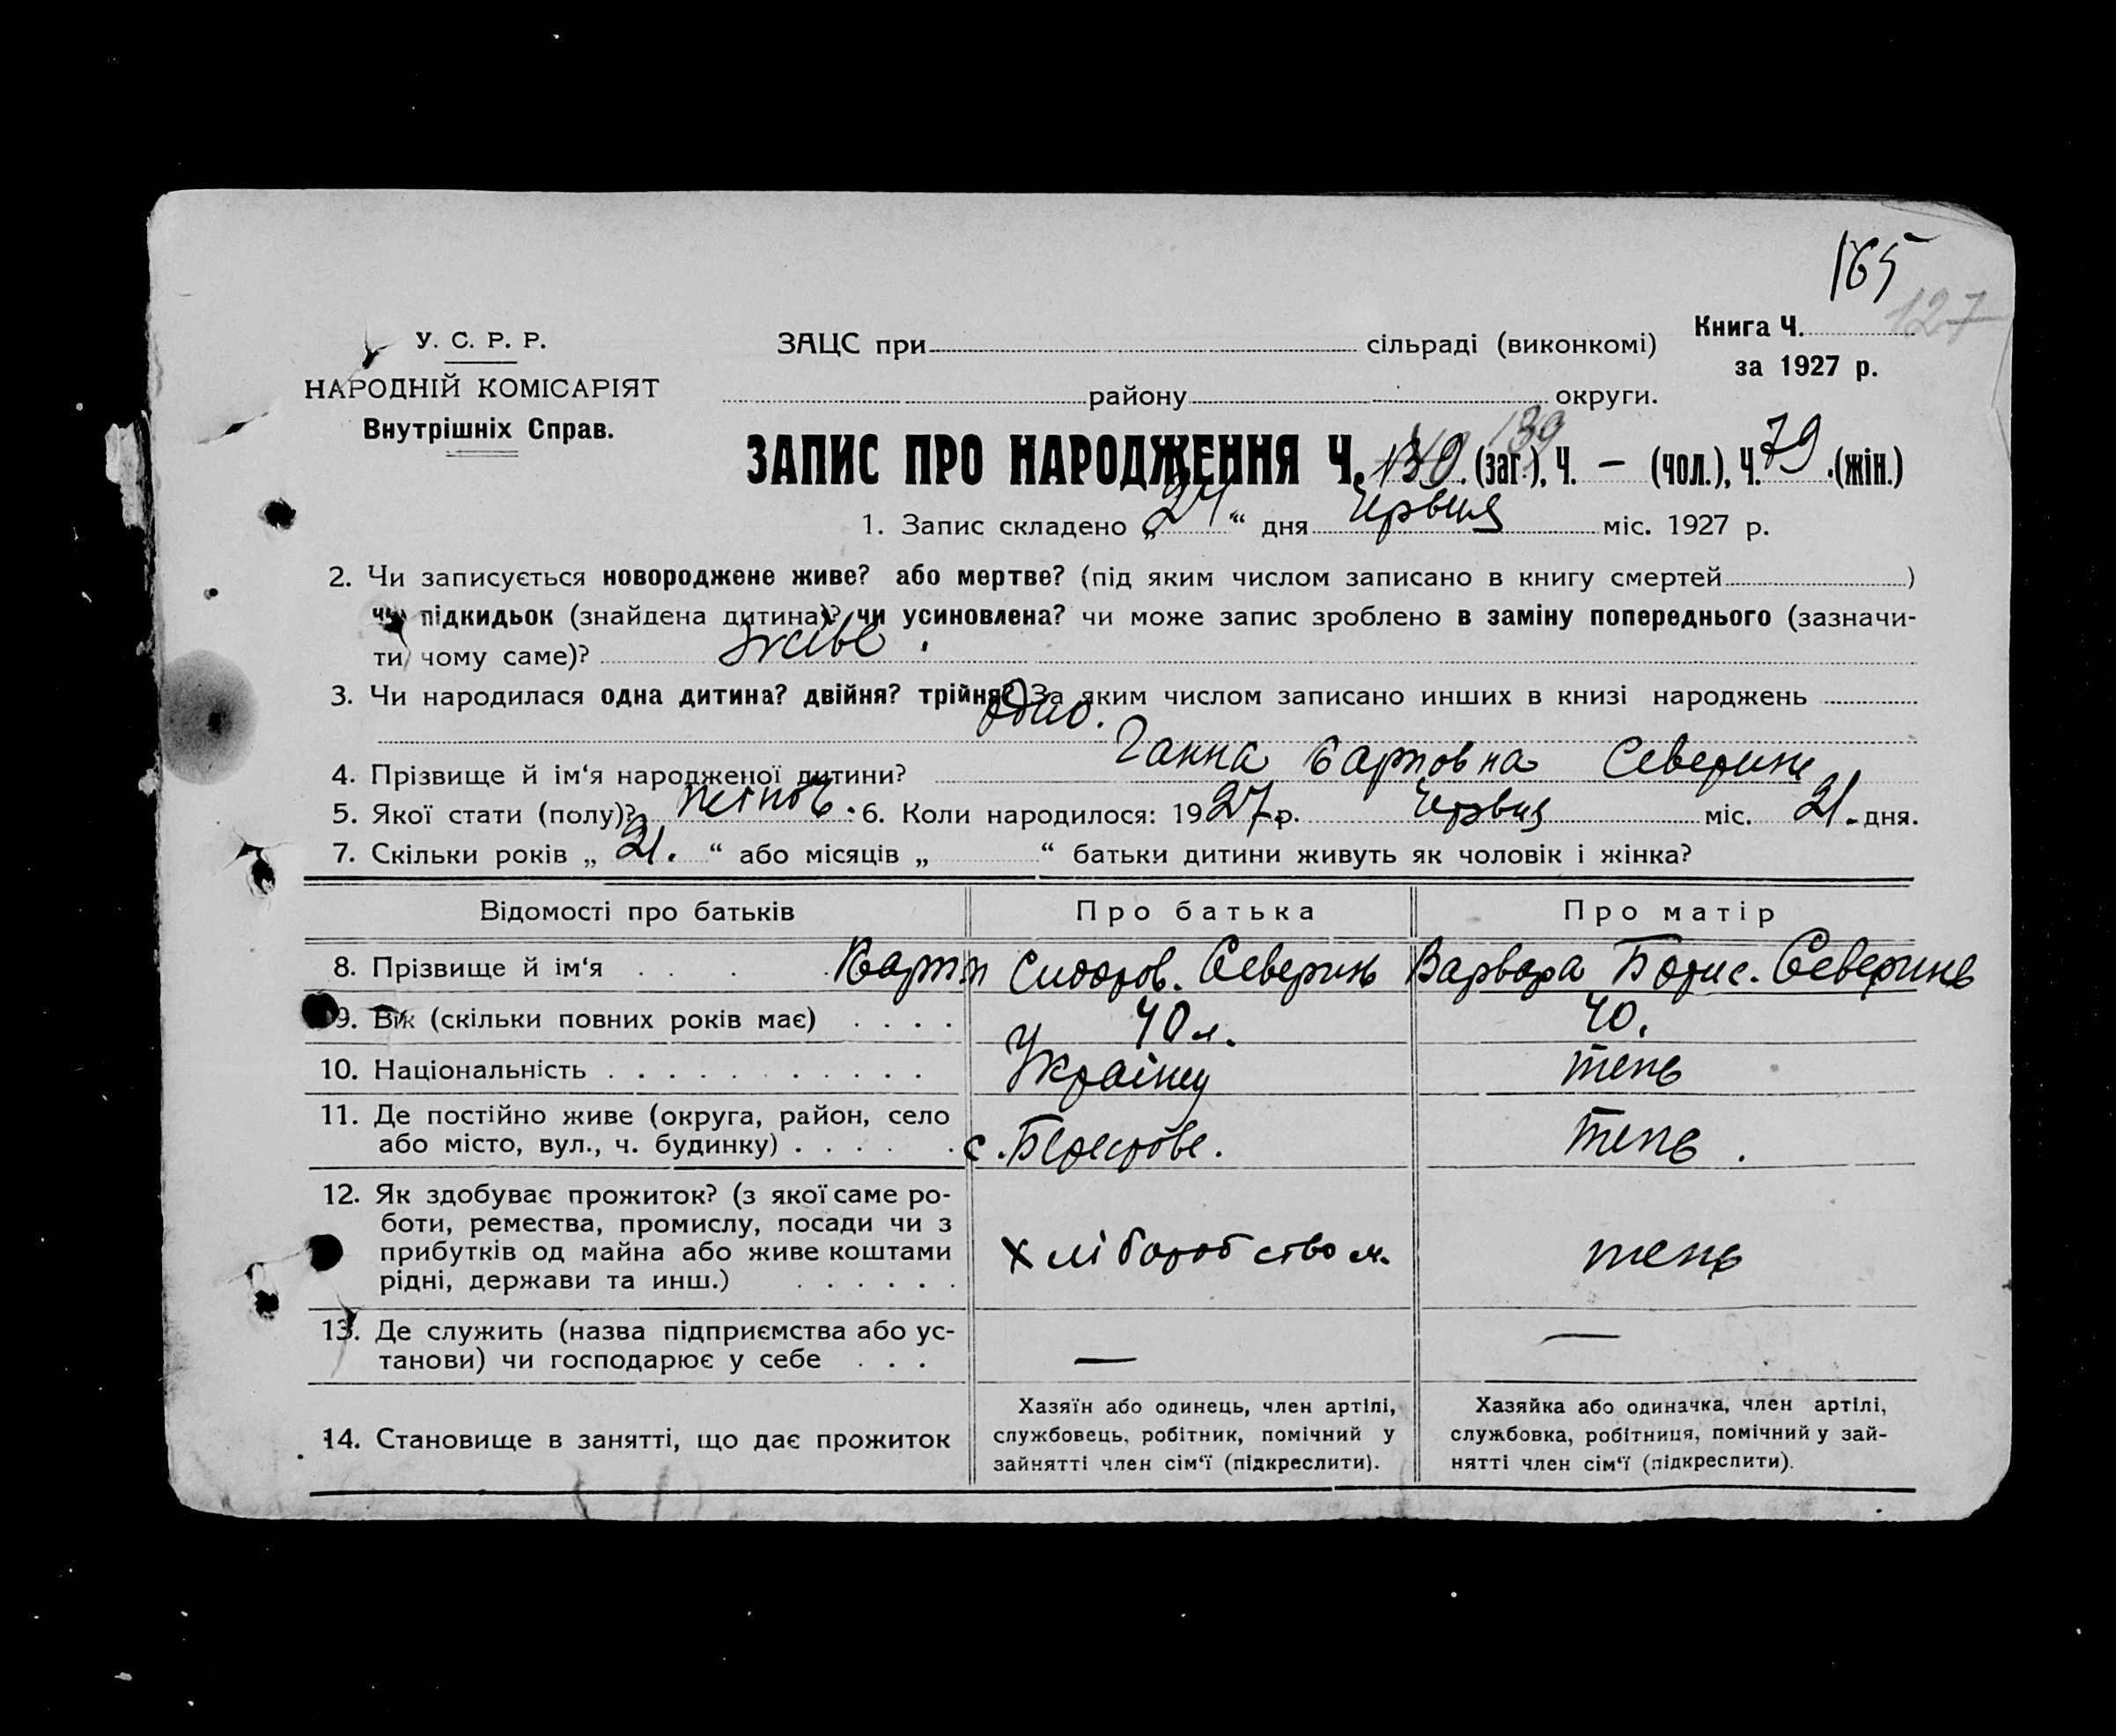 165
127
У. С. Р. Р.
НАРОДНІЙ КОМІСАРІЯТ
Внутрішніх Справ.
ЗАЦС при сільраді (виконкомі)
Книга Ч.
за 1927 р.
району округи.
139
ЗАПИС ПРО НАРОДЖЕННЯ Ч. (заг.), Ч. — (чол.), Ч. 79 (жін.)
1. Запис складено „24“ дня Червня міс. 1927 р.
2. Чи записується новороджене живе? або мертве? (під яким числом записано в книгу смертей)
чи підкидьок (знайдена дитина)? чи усиновлена? чи може запис зроблено в заміну попереднього (зазначи-
ти чому саме)? живе.
3. Чи народилася одна дитина? двійня? трійня? За яким числом записано инших в книзі народжень
одно.
4. Прізвище й ім‘я народженої дитини? Ганна Карповна Северин
5. Якої стати (полу)? жіноч. 6. Коли народилося: 1927 р. Червня міс. 21. дня.
7. Скільки років „21.“ або місяців „ “ батьки дитини живуть як чоловік і жінка?
Відомості про батьків Про батька Про матір
8. Прізвище й ім‘я Карп Сидоров. Северинь Варвара Борис. Северинь
9. Вік (скільки повних років має) 40 л. 40.
10. Національність Українц тень
11. Де постійно живе (округа, район, село
або місто, вул., ч. будинку) с. тень.
12. Як здобуває прожиток? (з якої саме ро-
боти, ремества, промислу, посади чи з
прибутків од майна або живе коштами
рідні, держави та инш.) Хліборобством. тень
13. Де служить (назва підприємства або ус-
танови) чи господарює у себе — —
14. Становище в занятті, що дає прожиток
Хазяїн або одинець, член артілі,
службовець, робітник, помічний у
зайнятті член сім‘ї (підкреслити).
Хазяйка або одиначка, член артілі,
службовка, робітниця, помічний у зай-
нятті член сім‘ї (підкреслити).